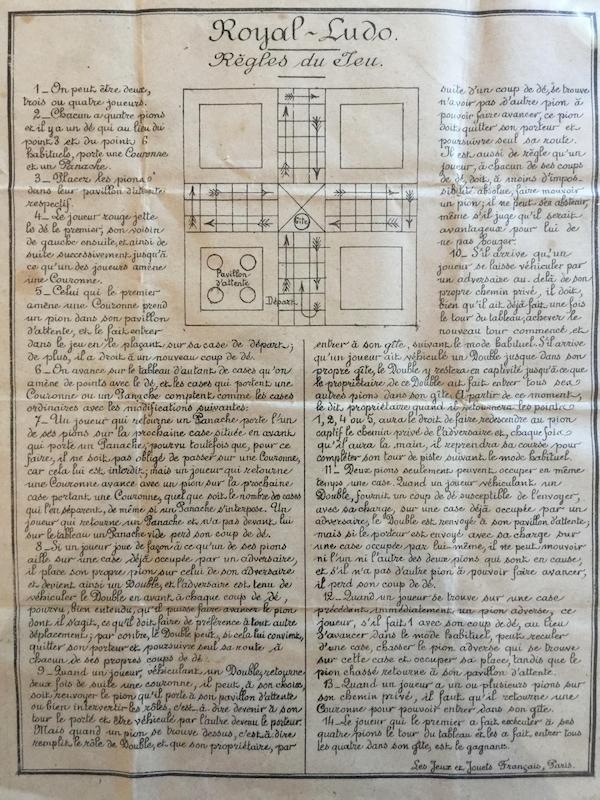 Royal-Ludo.
Règles du Jeu.
1_ On peut être deux,
trois ou quatre joueurs.
2_ Chacun a quatre pions
et il y a un dé qui au lieu du
point 3 et du point 6
habituels, porte une Couronne
et un Panache.
3_ Placez les pions
dans leur pavillon d'attente
respectif.
4_ Le joueur rouge jette
le dé le premier, son voisin
de gauche ensuite, et ainsi de
suite successivement jusqu'à
ce qu'un des joueurs amène
une Couronne.
5_ Celui qui le premier
amène une Couronne prend
un pion dans son pavillon
d'attente, et le fait entrer
dans le jeu en le plaçant sur sa case de départ;
de plus, il a droit à un nouveau coup de dé.
6_ On avance sur le tableau d'autant de cases qu'on
amène de points avec le dé, et les cases qui portent une
Couronne ou un Panache comptent comme les cases
ordinaires avec les modifications suivantes:
7_ Un joueur qui retourne un Panache porte l'un
de ses pions sur la prochaine case située en avant,
qui porte un Panache, pourvu toutefois que, pour ce
faire, il ne soit pas obligé de passer sur une Couronne,
car cela lui est interdit; mais un joueur qui retourne
une Couronne avance avec un pion sur la prochaine
case portant une Couronne, quel que soit le nombre de cases
qui l'en séparent, de même si un Panache s'interpose. Un
joueur qui retourne un Panache et n'a pas devant lui
sur le tableau un Panache vide perd son coup de dé.
8_ Si un joueur joue de façon à ce qu'un de ses pions
aille sur une case déjà occupée par un adversaire,
il place son propre pion sur celui de son adversaire
et devient ainsi un Double, et l'adversaire est tenu de
véhiculer le Double en avant, à chaque coup de dé,
pourvu, bien entendu, qu'il puisse faire avancer le pion
dont il s'agit, ce qu'il doit faire de préférence à tout autre
déplacement; par contre, le Double peut, si cela lui convient,
quitter son porteur et poursuivre seul sa route à
chacun de ses propres coups de dé.
9_ Quand un joueur, véhiculant un Double, retourne
deux fois de suite une couronne, il peut, à son choix,
soit renvoyer le pion qu'il porte à son pavillon d'attente
ou bien intervertir les rôles, c'est-à-dire devenir à son
tour le porté et être véhiculé par l'autre devenu le porteur.
Mais quand un pion se trouve dessus, c'est à dire
remplit le rôle de Double, et que son propriétaire, par
suite d'un coup de dé, se trouve
n'avoir pas d'autre pion à
pouvoir faire avancer, ce pion
doit quitter son porteur et
poursuivre seul sa route.
Il est aussi de règle qu'un
joueur, à chacun de ses coups
de dé, doit, à moins d'impos-
sibilité absolue, faire mouvoir
un pion; il ne peut s'en abstenir,
même s'il juge qu'il serait
avantageux pour lui de
ne pas bouger.
10_ S'il arrive qu'un
joueur se laisse véhiculer par
un adversaire au delà de son
propre chemin privé, il doit,
bien qu'il ait déjà fait une fois
le tour du tableau, achever le
nouveau tour commencé et
entrer à son gîte, suivant le mode habituel. S'il arrive
qu'un joueur ait véhiculé un Double jusque dans son
propre gîte, le Double y restera en captivité jusqu'à ce que
le propriétaire de ce Double ait fait entrer tous ses
autres pions dans son gîte. A partir de ce moment,
le dit propriétaire quand il retournera les points
1, 2, 4 ou 5, aura le droit de faire redescendre au pion
captif le chemin privé de l'adversaire et, chaque fois
qu'il aura la main, il reprendra sa course pour
compléter son tour de piste suivant le mode habituel.
11_ Deux pions seulement peuvent occuper en même
temps une case. Quand un joueur véhiculant un
Double, fournit un coup de dé susceptible de l'envoyer,
avec sa charge, sur une case déjà occupée par un
adversaire, le Double est renvoyé à son pavillon d'attente;
mais si le porteur est envoyé avec sa charge sur
une case occupée par lui-même, il ne peut mouvoir
ni l'un ni l'autre des deux pions qui sont en cause,
et s'il n'a pas d'autre pion à pouvoir faire avancer,
il perd son coup de dé.
12_ Quand un joueur se trouve sur une case
précédant immédiatement un pion adverse, ce
joueur, s'il fait 1 avec son coup de dé, au lieu
d'avancer dans le mode habituel, peut reculer
d'une case, chasser le pion adverse qui se trouve
sur cette case et occuper sa place, tandis que le
pion chassé retourne à son pavillon d'attente.
13_ Quand un joueur a un ou plusieurs pions sur
son chemin privé, il faut qu'il retourne une
Couronne pour pouvoir entrer dans son gîte.
14_ Le joueur qui le premier a fait exécuter à ses
quatre pions le tour du tableau et les a fait entrer tous
les quatre dans son gîte, est le gagnant.
Les Jeux et Jouets Français, Paris.
Gîte
Pavillon
d'attente
Départ